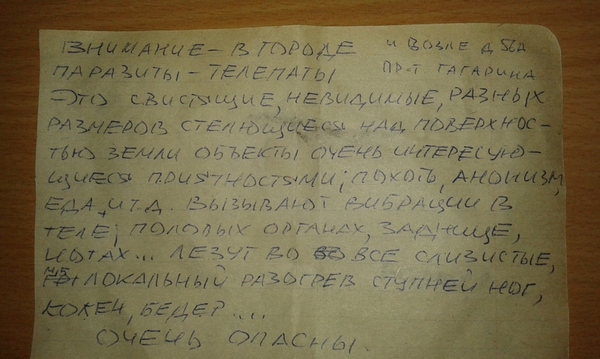 ВНИМАНИЕ – В ГОРОДЕ И ВОЗЛЕ Д 56А
ПАРАЗИТЫ – ТЕЛЕПАТЫ ПР-Т ГАГАРИНА
– ЭТО СВИСТЯЩИЕ, НЕВИДИМЫЕ, РАЗНЫХ
РАЗМЕРОВ СТЕЛЮЩИЕСЯ НАД ПОВЕРХНОС-
ТЬЮ ЗЕМЛИ ОБЪЕКТЫ ОЧЕНЬ ИНТЕРЕСУЮ-
ЩИЕСЯ ПРИЯТНОСТЯМИ; ПОХОТЬ, АНОНИЗМ,
ЕДА, И Т.Д. ВЫЗЫВАЮТ ВИБРАЦИИ В
ТЕЛЕ; ПОЛОВЫХ ОРГАНАХ, ЗАДНИЦЕ,
НОГАХ... ЛЕЗУТ ВО ВСЕ СЛИЗИСТЫЕ,
ЛОКАЛЬНЫЙ РАЗОГРЕВ СТУПНЕЙ НОГ,
КОЛЕН, БЕДЕР....
ОЧЕНЬ ОПАСНЫ.